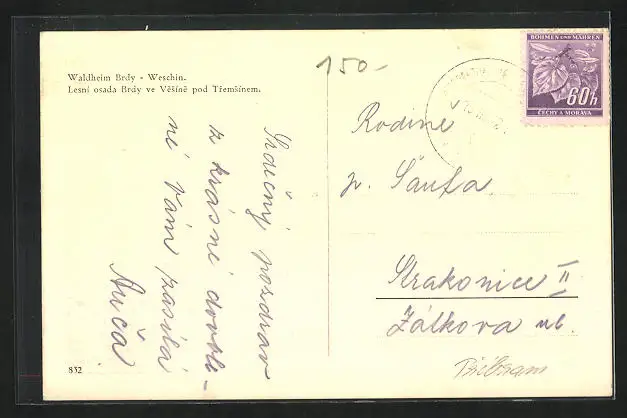 Waldheim Brdy - Weschin.
Lesní osada Brdy ve Věšíně pod Třemšínem.
150-
BÖHMEN UND MÄHREN
60h
ČECHY A MORAVA
Srdečný pozdrav
z krásné dovole-
né Vám zasílá
Anča
Rodine
p. Šanta
Strakonice II
Zálkova ul.
Příbram
832